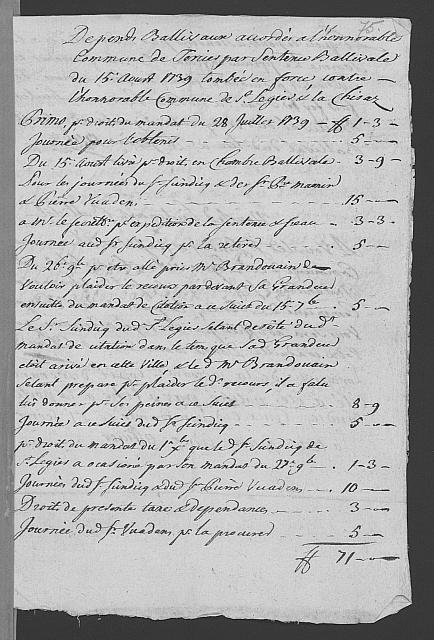 75
Depends Ballivaux accordés a l'honnorable
Commune de Torcies par Sentence Ballivale
du 15 Aoust 1739 tombée en force contre
l'honnorable Commune de St Legies & la Chiesaz
Primo, pr droit du mandat du 28 Juillet 1739 ff 1-3-
Journée pour l'obtenir 5-
Du 15 Aoust livré pr droit en Chambre Ballivale 3-9-
Pour les journées du Sr Sindicq & des Srs Mamin
& Pierre Vuaden 15-
a Mr le Secretre pr expedition de la Sentence & sceau 3-3-
Journée aud Sr Sindicq pr la retirer 5-
Du 26e 9bre pr etre allé prier Mr Brandouain de
vouloir plaider le recours par devant Sa Grandeur
ensuitte du mandat de Citation a ce Sujet du 15 7bre 5-
Le Sr Sindicq dud St Legies s'etant desisté dud
mandat de citation dans le tems que sad Grandeur
etoit arivé en cette Ville & led Mr Brandouain
s'etant preparé pr plaider led recours, il a falu
luy donner pr ses peines a ce Sujet 8-9
Journée a ce Sujet dud Sr Sindicq 5-
pr droit du mandat du 1er Xbre que le Sr Sindicq de
St Legies a ocasioné par son mandat du 27e 9bre 1-3-
Journées dud Sr Sindicq & du Sr Pierre Vuaden 10-
Droit de presente taxe & dependances 3-
Journée dud Sr Vuaden pr la procurer 5-
ff 71-